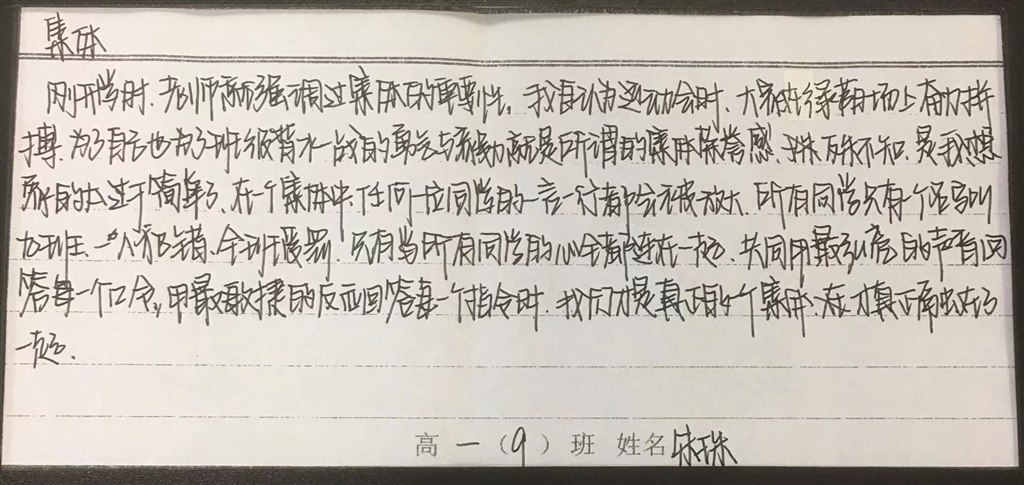 集体
刚开学时,老师就强调过集体的重要性。我自认为运动会时,大家在绿茵场上奋力拼
搏,为了自己也为了班级背水一战的勇气与感动就是所谓的集体荣誉感,殊不知,是我想
的太过于简单了,在一个集体中,任何一位同学的一言一行都会被放大,所有同学只有一个名字叫
九班,一人犯错,全班受罚,只有当所有同学的心全都连在一起,共同用最弘亮的声音回
答每一个口令,用最敏捷的反应回答每一个指令时,我们才是真正的一个集体,在才真正凝聚在了
一起。
高一(9)班 姓名